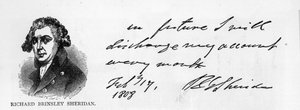 in future I will
discharge my account
every month
Feby 17,
1808
RBSheridan
RICHARD BRINSLEY SHERIDAN.